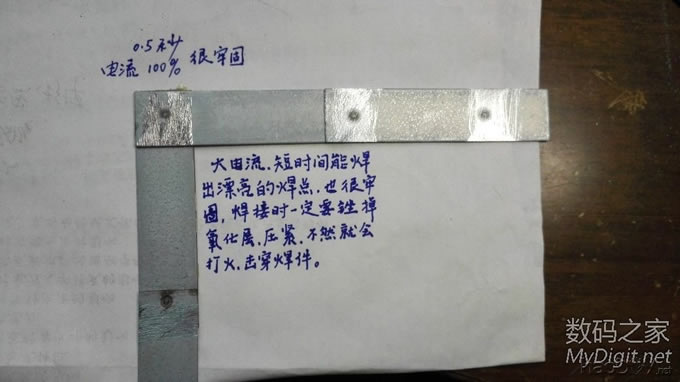 0.5秒
电流100% 很牢固
大电流.短时间能焊
出漂亮的焊点.也很牢
固,焊接时一定要锉掉
氧化层,压紧.不然就会
打火.击穿焊件。
数码之家
MyDigit.net